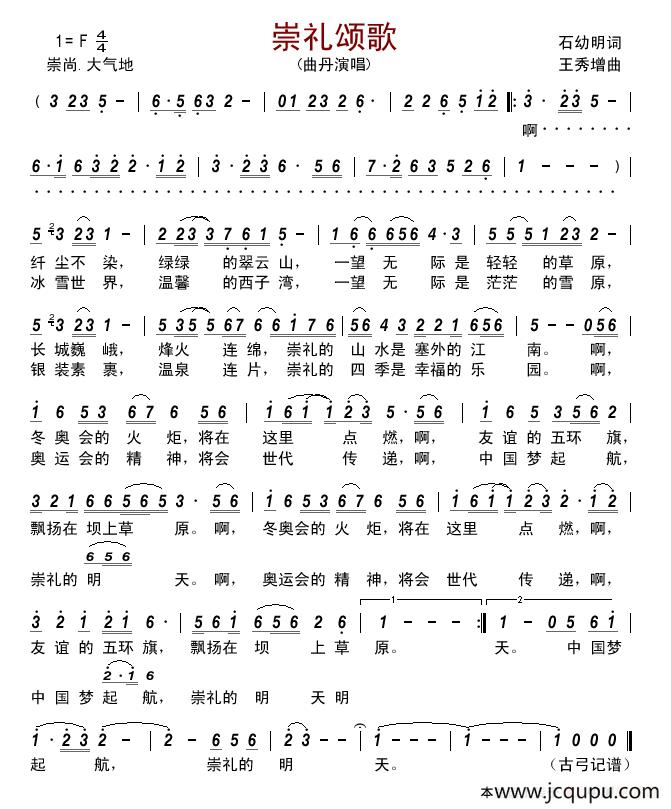 崇礼颂歌
1= F 4/4
石幼明词
崇尚.大气地
(曲丹演唱)
王秀增曲
( 3 2 3 5 - | 6 · 5 6 3 2 - | 0 1 2 3 2 - | 2 2 6 5 1 2 |: 3 · 2 3 5 - |
啊 · · · · · · ·
6 · 1 6 3 2 2 · 1 | 3 · 2 3 6 · 5 6 | 7 · 2 6 3 5 2 6 | 1 - - - )
5 2 3 2 3 1 - | 2 2 2 3 3 7 6 1 5 - | 1 6 6 6 5 6 4 · 3 | 5 5 5 5 1 2 3 2 - |
纤 尘 不 染, 绿绿 的翠云 山, 一望 无 际 是 轻轻 的 草 原,
冰 雪 世 界, 温馨 的西子 湾, 一望 无 际 是 茫茫 的 雪 原,
5 2 3 2 3 1 - | 5 3 5 5 6 7 6 6 1 7 | 5 6 4 3 2 2 1 6 5 6 | 5 - - 0 5 6 |
长 城巍 峨, 烽火 连 绵, 崇礼的 山 水是 塞外的 江 南。 啊,
银 装素 裹, 温泉 连 片, 崇礼的 四 季是 幸福的 乐 园。 啊,
1 6 5 3 6 7 6 5 6 | 1 6 1 1 2 3 5 · 5 | 1 6 5 3 5 6 2 |
冬 奥 会 的 火 炬, 将在 这里 点 燃, 啊, 友 谊 的 五环 旗,
奥 运 会 的 精 神, 将会 世代 传 递, 啊, 中 国 梦 起 航,
3 2 1 6 6 5 6 5 3 · 5 6 | 1 6 5 3 6 7 6 5 6 | 1 6 1 1 2 3 2 · 1 2 |
飘扬在 坝上草 原。 啊, 冬奥会的 火 炬, 将在 这里 点 燃, 啊,
6 5 6
崇礼的 明 天。 啊, 奥运会的 精 神, 将会 世代 传 递, 啊,
3 2 1 2 2 1 6 · | 5 6 1 6 5 6 2 6 | 1 - - - :| 1 - 0 5 6 1 |
友 谊 的 五环 旗, 飘扬在 坝 上 草 原。 天。 中 国梦
2 · 1 6
中 国 梦 起 航, 崇礼的 明 天明
1 · 2 3 2 - | 2 - 6 5 6 | 2 3 · - - | 1 - - - | 1 0 0 0 ‖
起 航, 崇礼的 明 天。 (古弓记谱)
本www.jcqupu.com